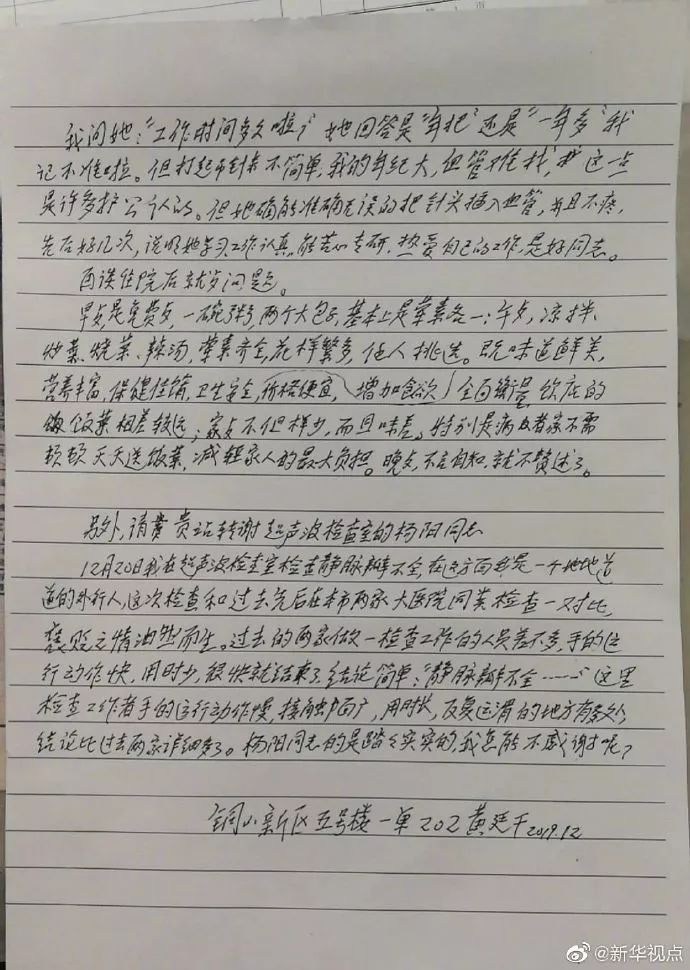 我问她:“工作时间多久啦?”她回答是“年把”还是“一年多”我
记不准啦。但打起针来不简单,我的年纪大,血管难找,这一点
是许多护公认的。但她确能准确无误的把针头插入血管,并且不疼,
先后好几次,说明她学习工作认真,能苦心专研,热爱自己的工作,是好同志。
再谈住院后就歺问题。
早歺是免费歺,一碗粥,两个大包子,基本上是荤素各一;午歺,凉拌、
炒菜、烧菜、辣汤,荤素齐全,花样繁多,任人挑选。既味道鲜美,
营养丰富,保健佳销,卫生安全,价格便宜,增加食欲,全面衡量,饮店的
饭菜相差较远;家歺不但样少,而且味差。特别是病者家不需
顿顿天天送饭菜,减轻家人的最大负担。晚歺,不言自知,就不赘述了。
另外,请贵站转谢超声波检查室的杨阳同志
12月20日我在超声波检查室检查静脉瓣不全,在这方面我是一个地地道
道的外行人,这次检查和过去先后在本市两家大医院同类检查一对比,
褒贬之情油然而生。过去的两家做一检查工作的人员差不多,手的运
行动作快,用时少,很快就结束了,结论简单:“静脉瓣不全……”这里
检查工作者手的运行动作慢,接触面广,用时长,反复运滑的地方有多处,
结论比过去两家详细多了。杨阳同志的是踏踏实实的,我怎能不感谢呢?
铜山新区五号楼一单202 黄廷干 2019.12
@新华视点